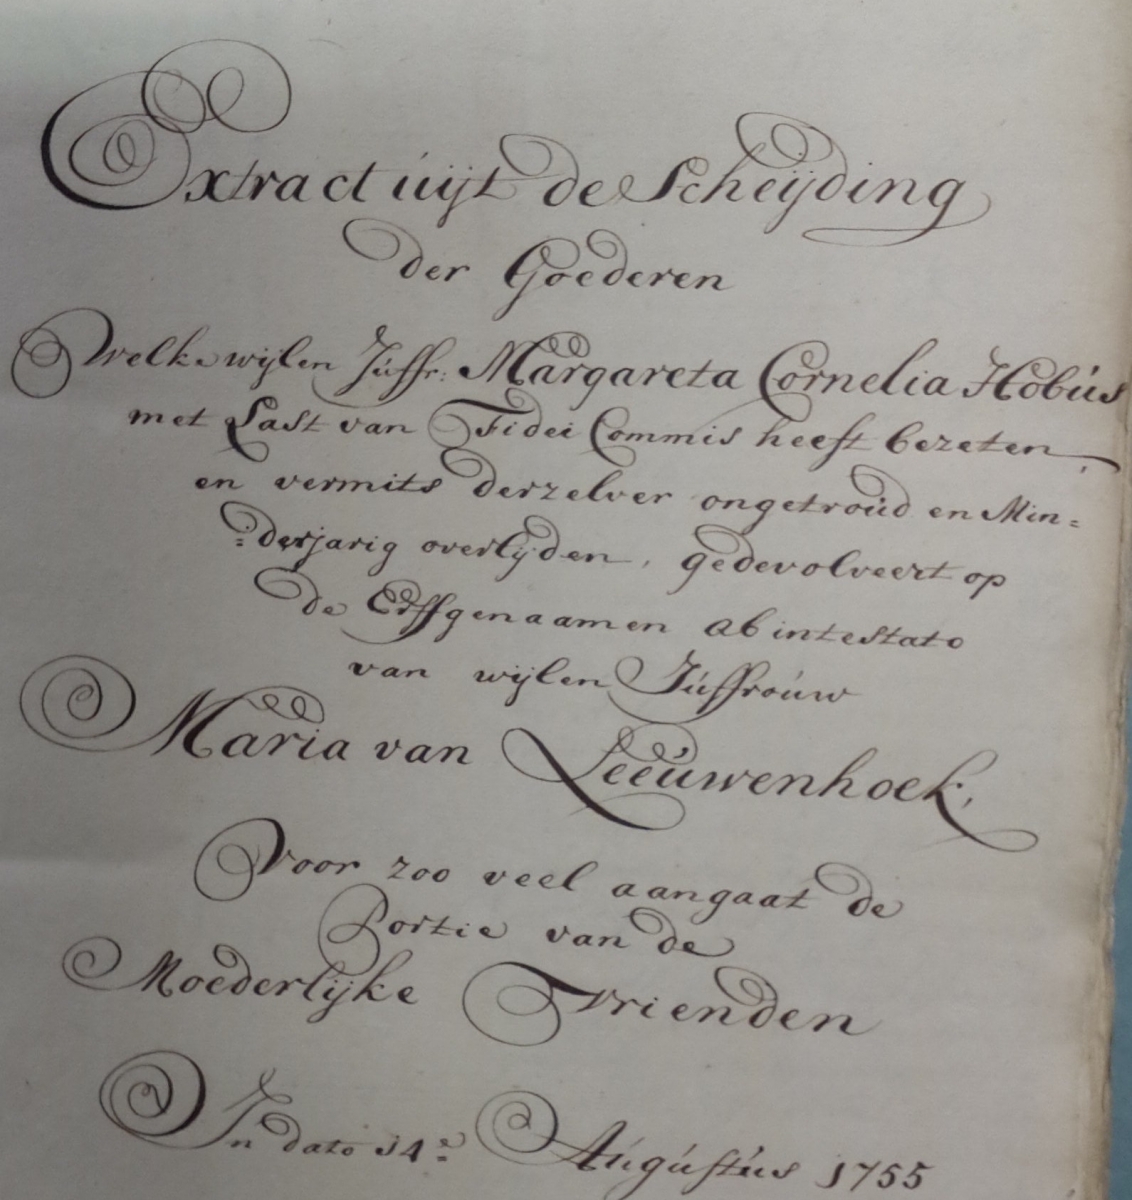 Extract uijt de Scheijding
der Goederen
Welke wijlen Juffr: Margareta Cornelia Hobus
met Last van Fidei Commis heeft bezeten,
en vermits derzelver ongetroud en Min=
=derjarig overlijden, gedevolveert op
de Erffgenaamen ab intestato
van wijlen Juffrouw
Maria van Leeuwenhoek,
Voor zoo veel aangaat de
Portie van de
Moederlijke Vrienden
In dato 14e Augustus 1755